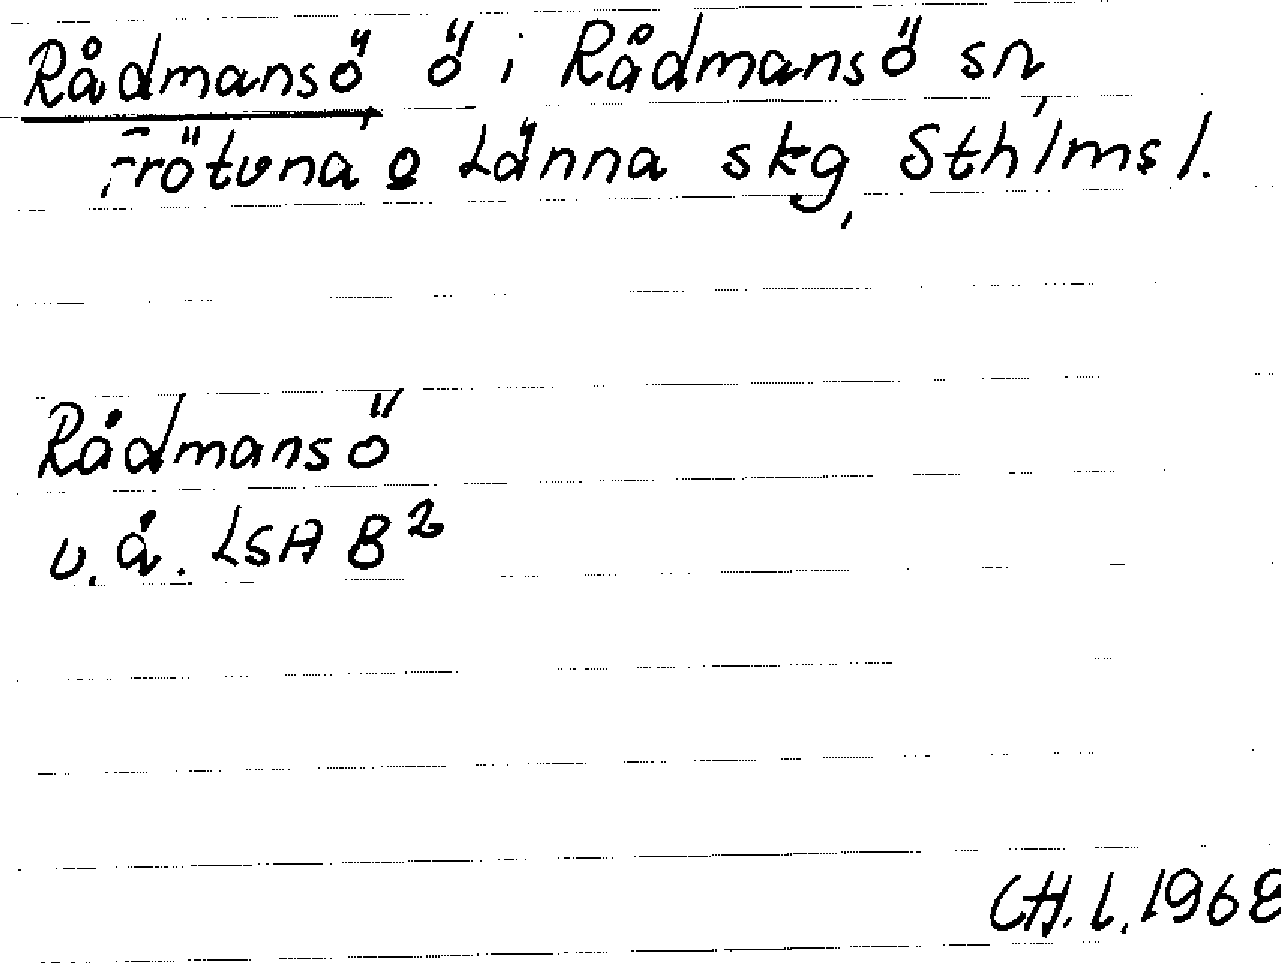 Rådmansö, ö i Rådmansö sn,
Frötuna o Länna skg, Sthlms l.
Rådmansö
u.å. LSA B²
CH. L. 1968